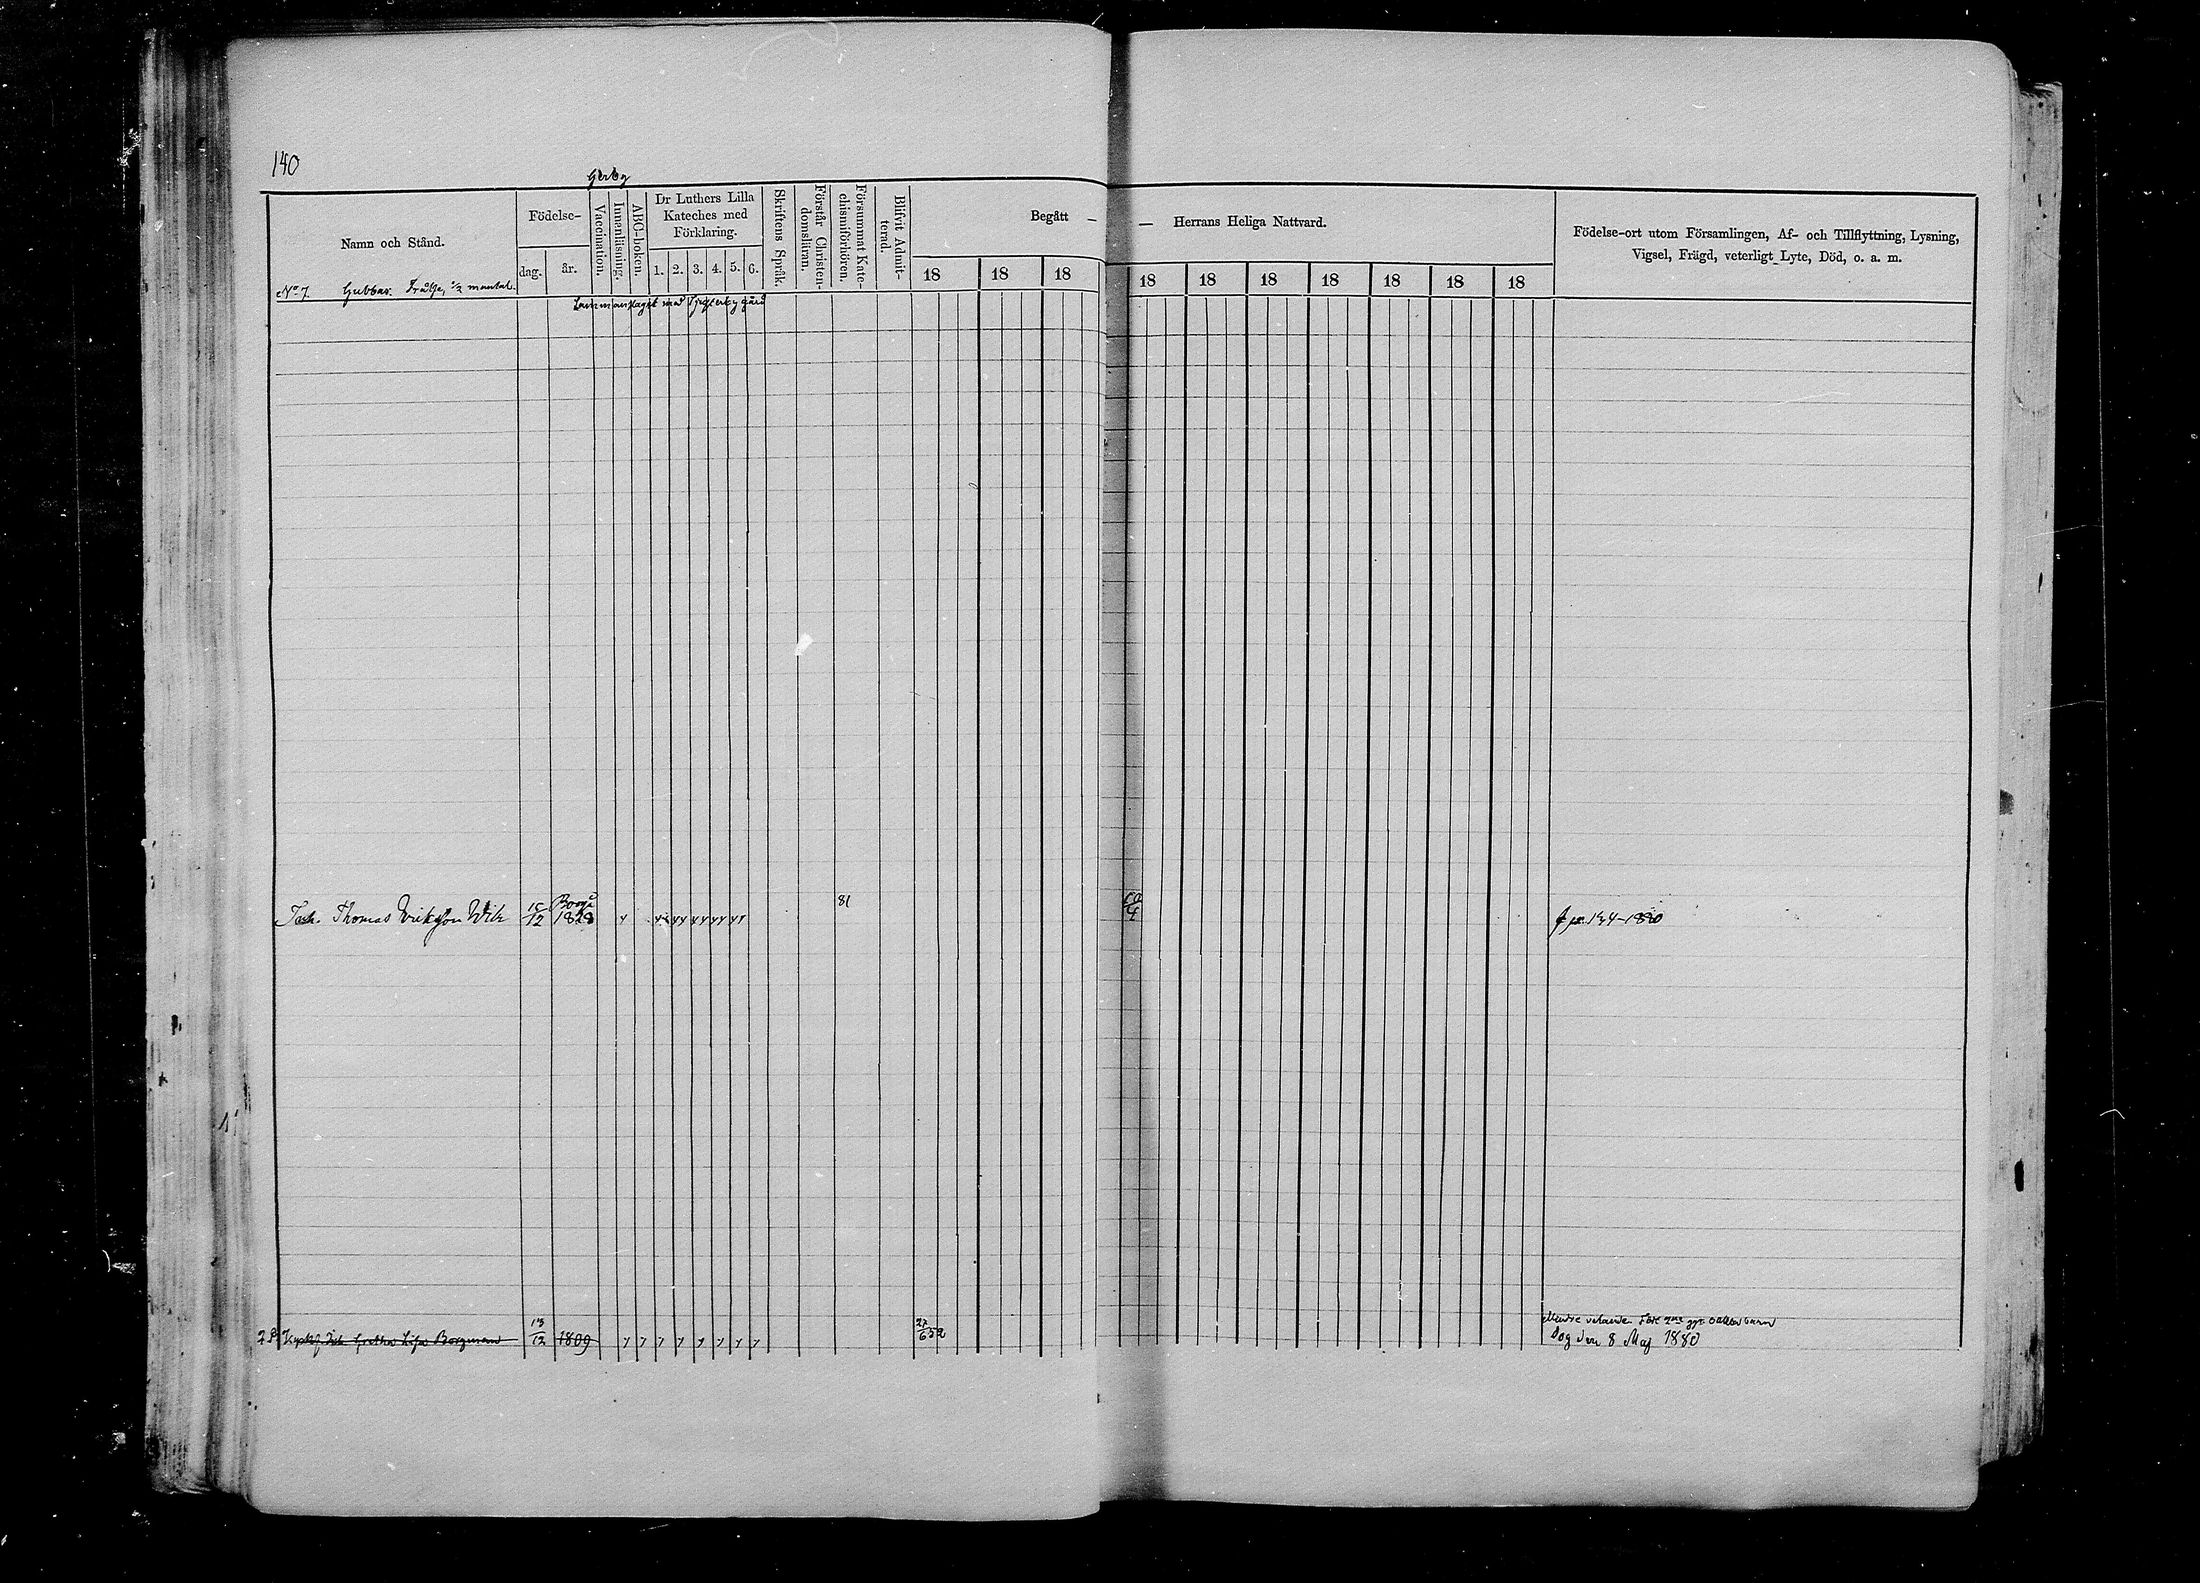 140
Gerby
Namn och Stånd.
Födelse-
dag.
år.
Vaccination.
Innenläsning.
ABC-boken.
Dr Luthers Lilla
Kateches med
Förklaring.
1. 2. 3. 4. 5. 6.
Skriftens Språk.
Förstår Christen-
domsläran.
Försummat Kate-
chismiförhören.
Blifvit Admit-
terad.
Begått —
18 18 18
— Herrans Heliga Nattvard.
18 18 18 18 18 18 18
Födelse-ort utom Församlingen, Af- och Tillflyttning, Lysning,
Vigsel, Frägd, veterligt Lyte, Död, o. a. m.
No 7. Gubbas. Frälse, 1/2 mantal.
Sammanslaget med gård
Borgå
Joh. Thomas Eriksson Wik 12 1828 81
4
134-1880
13
12 1809
27
652
Dog den 8 Maj 1880